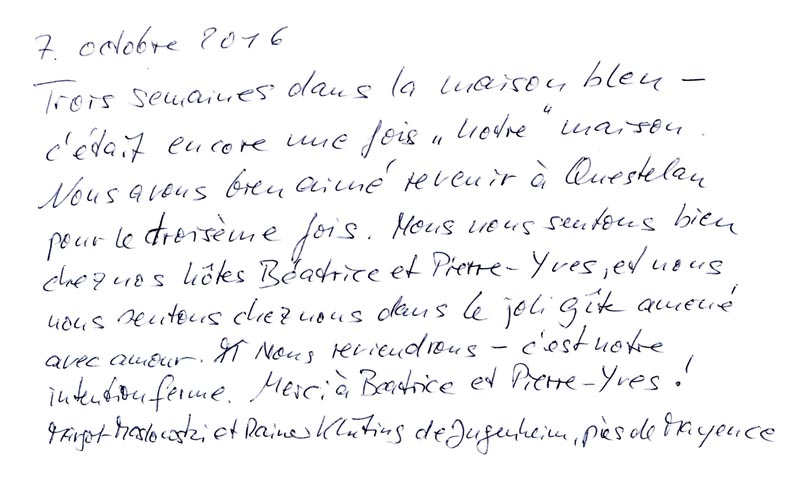 7. octobre 2016
Trois semaines dans la maison bleu —
c'était encore une fois „notre“ maison.
Nous avons bien aimé revenir à Questelan
pour le troisème fois. Nous nous sentons bien
chez nos hôtes Béatrice et Pierre-Yves, et nous
nous sentons chez nous dans le joli gîte amené
avec amour. Nous reviendrons – c'est notre
intention ferme. Merci à Béatrice et Pierre-Yves!
Margot et Rainer de Jugenheim, près de Mayence